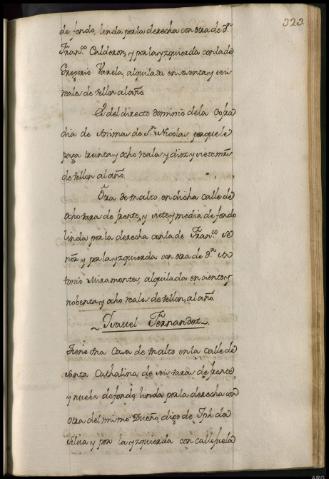 323
de fondo, linda por la derecha con otra de Dn
Franco Calderon, y por la yzquierda con la de
Gregorio Varela, alquilada en
reales de vellon al año
Es del directo dominio de la Cofra
dia de Animas de Sn Nicolas, porque le
paga treinta y ocho reales y diez y siete mrs
de vellon al año
Otra de malto, en dicha calle de
ocho varas de frente, y siete y media de fondo
linda por la derecha con la de Franco
y por la yzquierda con otra de Dn An
tonio alquilada en ciento y
noventa y ocho reales de vellon al año
Fernandez
Tiene una Casa de malto en la calle de
Santa Cathalina de seis varas de frente
y nueve de fondo, linda por la derecha con
otra del mismo Dueño, digo de Jph
y por la yzquierda con